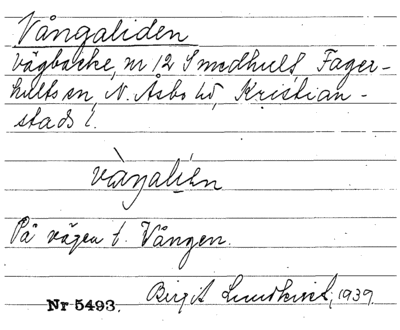 Vångaliden
vägbacke, nr 12 Smedhult, Fager-
hults sn, N. Åsbo hd, Kristian-
stads l.
vàŋalíen
På vägen t. Vången.
Birgit Lundkvist, 1939.
Nr 5493.